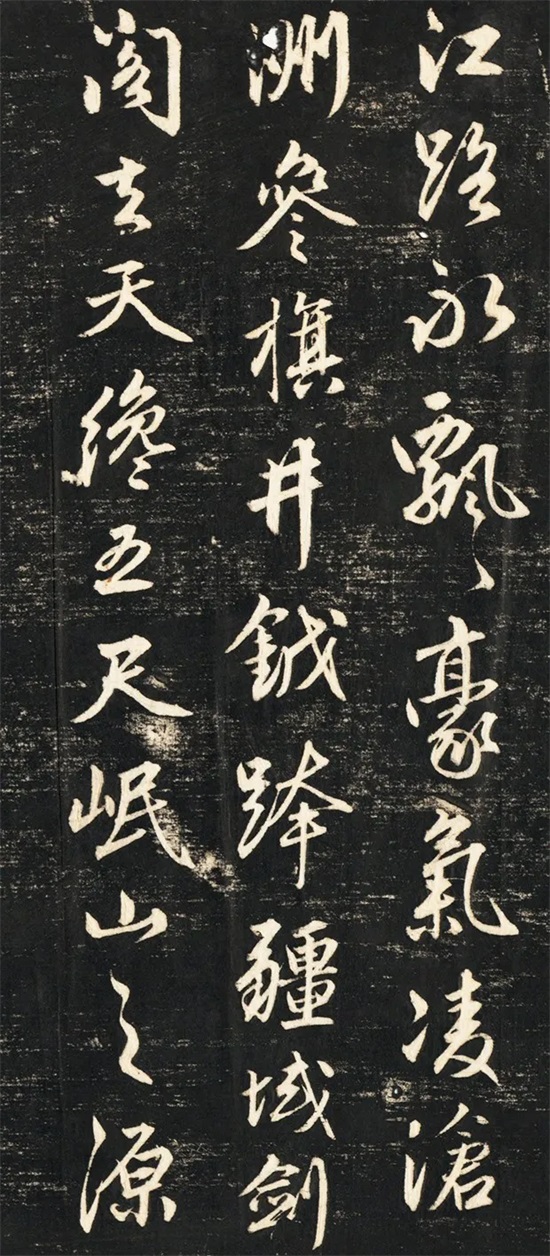 江路永飄〻豪氣凌滄
洲參旗井鉞蹕疆域劍
閣去天纔五尺岷山之源